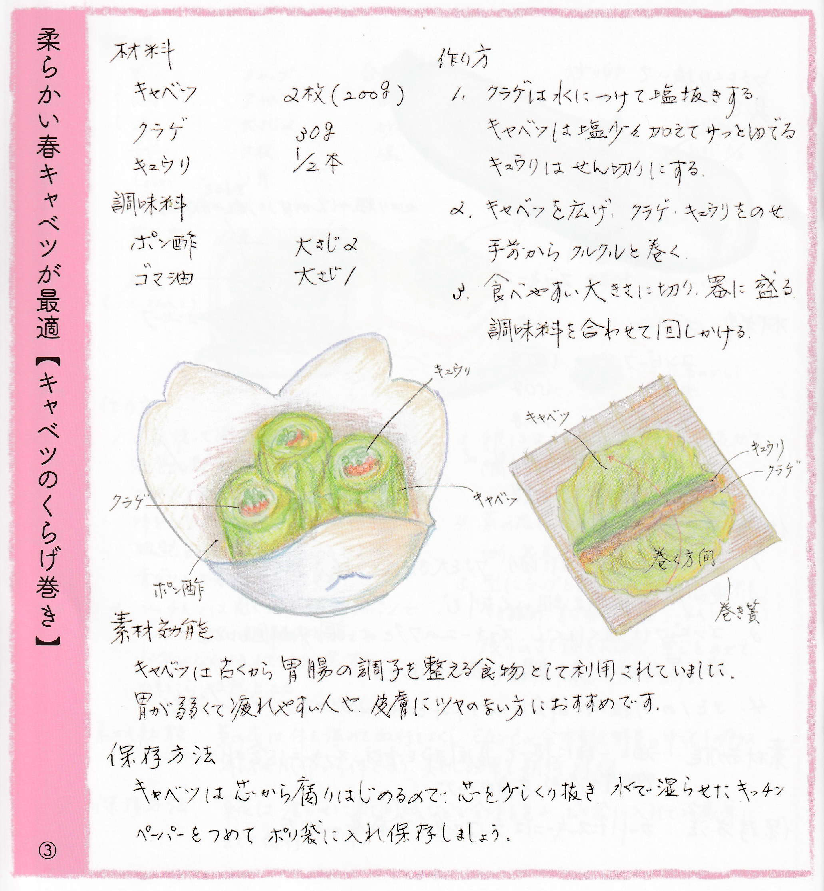 柔らかい春キャベツが最適【キャベツのくらげ巻き】
③
材料
キャベツ 2枚(200g)
クラゲ 30g
キュウリ 1/2本
調味料
ポン酢 大さじ2
ゴマ油 大さじ1
作り方
1. クラゲは水につけて塩抜きする。
キャベツは塩少々加えてサッとゆでる
キュウリはせん切りにする。
2. キャベツを広げ、クラゲ・キュウリをのせ
手前からクルクルと巻く。
3. 食べやすい大きさに切り、器に盛る。
調味料を合わせて回しかける。
キュウリ
クラゲ
キャベツ
ポン酢
キャベツ
キュウリ
クラゲ
巻く方向
巻き簀
素材効能
キャベツは古くから胃腸の調子を整える食物として利用されていました。
胃が弱くて疲れやすい人や、皮膚にツヤのない方におすすめです。
保存方法
キャベツは芯から腐りはじめるので、芯を少しくり抜き 水で湿らせたキッチン
ペーパーをつめて ポリ袋に入れ保存しましょう。